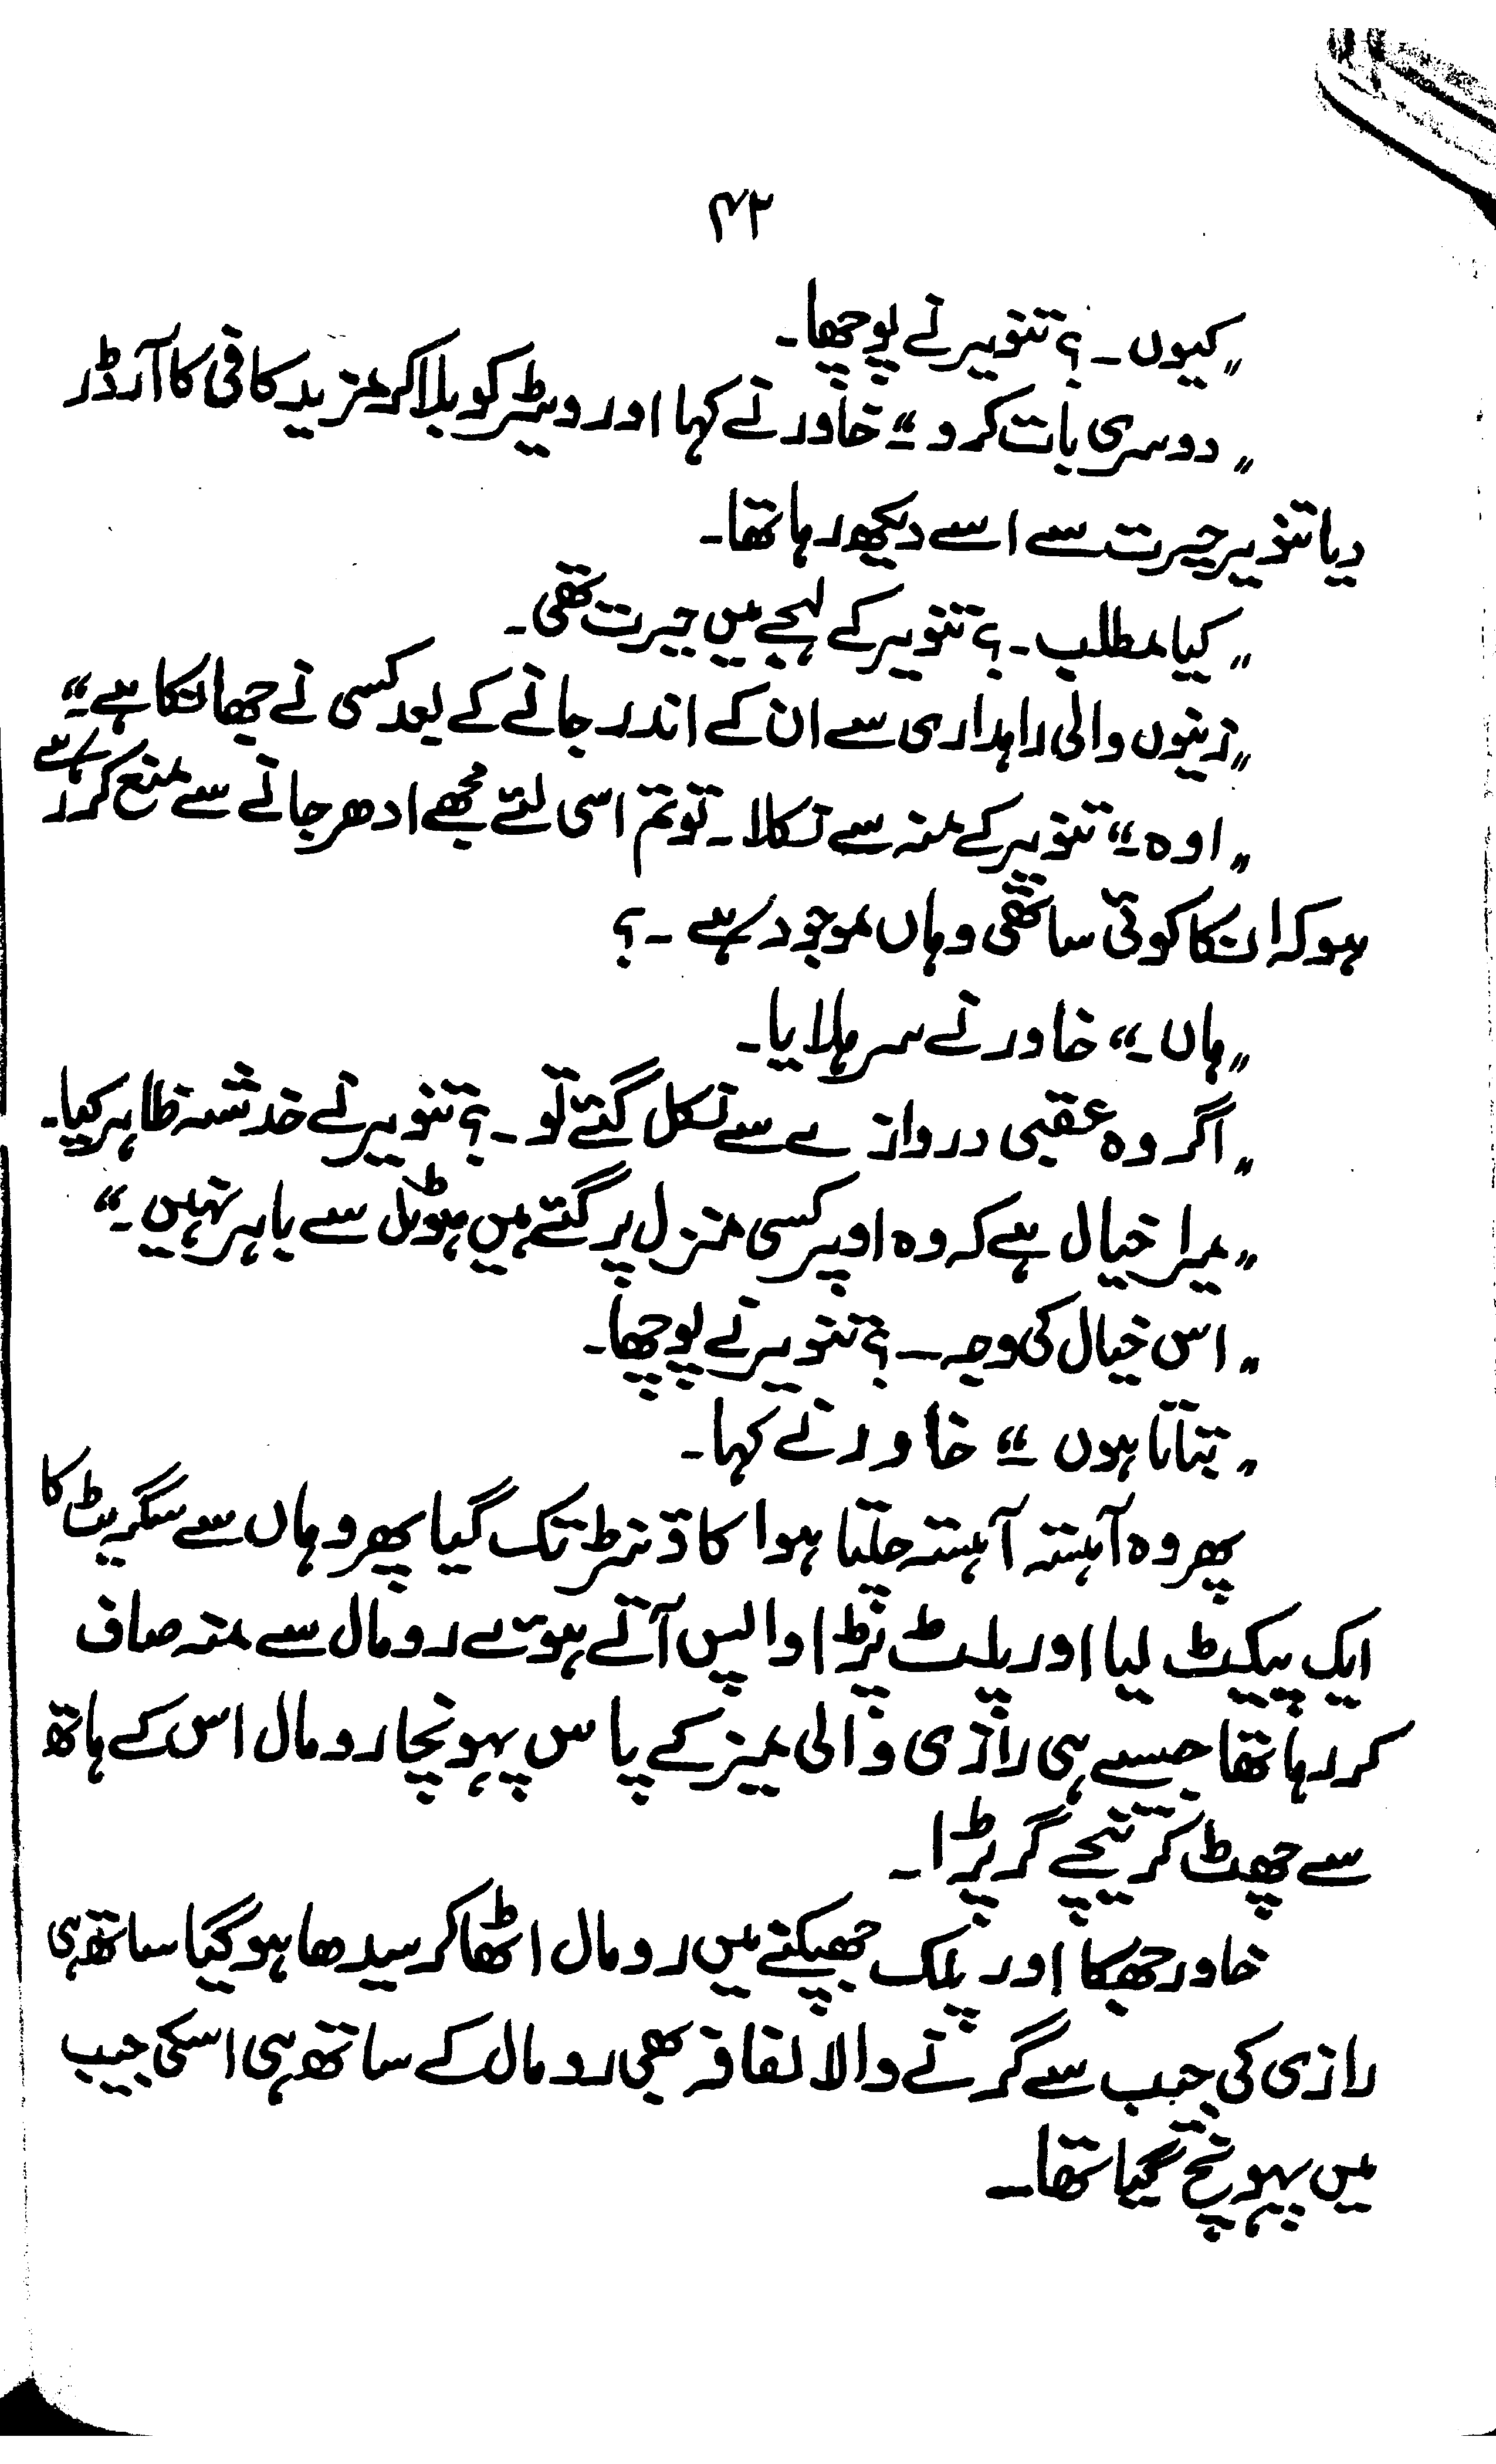 ۴۲
"کیوں۔؟ تنویر نے پوچھا۔
"دوسری بات کرو۔" خاور نے کہا اور ویٹر کو بلا کر مزید کافی کا آرڈر
دیا تنویر حیرت سے اسے دیکھ رہا تھا۔
"کیا مطلب۔؟ تنویر کے لہجے میں حیرت تھی۔
"زینوں والی راہداری سے ان کے اندر جانے کے بعد کسی نے جھانکا ہے۔"
"اوہ۔" تنویر کے منہ سے نکلا۔ تو تم اسی لئے مجھے ادھر جانے سے منع کر رہے
ہو کہ انکا کوئی ساتھی وہاں موجود ہے۔؟
"ہاں۔" خاور نے سر ہلایا۔
"اگر وہ عقبی دروازے سے نکل گئے تو۔؟ تنویر نے خدشہ ظاہر کیا۔
"میرا خیال ہے کہ وہ اوپر کسی منزل پر گئے ہیں ہوٹل سے باہر نہیں۔"
"اس خیال کی وجہ۔؟ تنویر نے پوچھا۔
"بتاتا ہوں۔" خاور نے کہا۔
پھر وہ آہستہ آہستہ چلتا ہوا کاؤنٹر تک گیا پھر وہاں سے سگریٹ کا
ایک پیکیٹ لیا اور پلٹ پڑا واپس آتے ہوئے رومال سے منہ صاف
کر رہا تھا جیسے ہی رازی والی میز کے پاس پہونچا رومال اس کے ہاتھ
سے چھٹ کر نیچے گر پڑا۔
خاور جھکا اور پلک جھپکتے میں رومال اٹھا کر سیدھا ہو گیا ساتھ ہی
رازی کی جیب سے گرنے والا لفافہ بھی رومال کے ساتھ ہی اسکی جیب
میں پہونچ گیا تھا۔